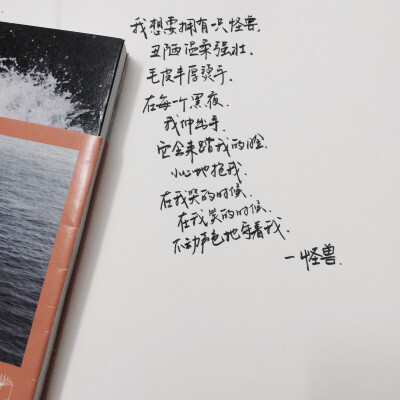 我想要拥有一只怪兽.
丑陋温柔强壮.
毛皮丰厚烫手.
在每一个黑夜.
我伸出手.
它会来蹭我的脸.
小心地抱我.
在我哭的时候.
在我笑的时候.
不动声色地守着我.
—怪兽.